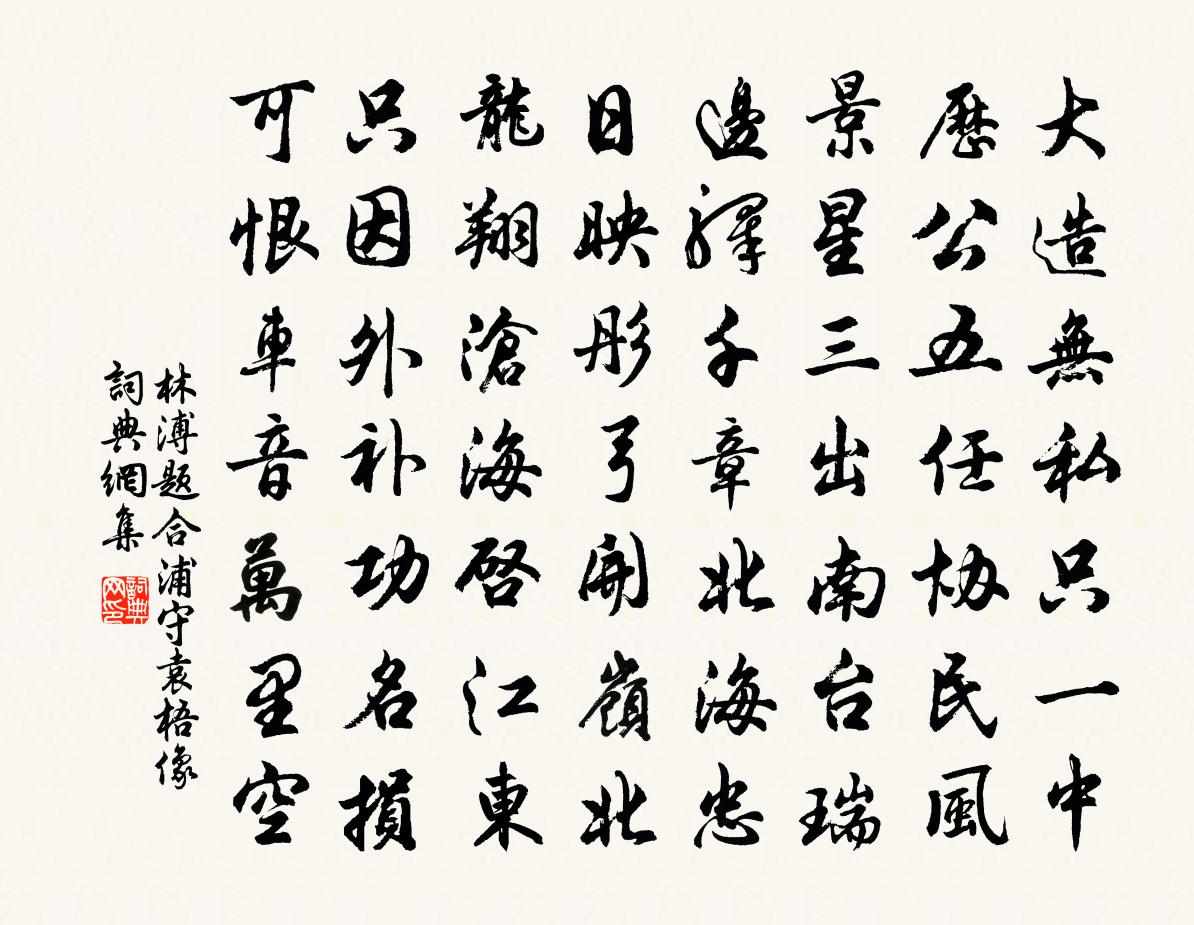 大造無私只一中
歷公五任協民風
景星三出南台瑞
邊驛千章北海忠
日映彤弓開嶺北
龍翔滄海啓江東
只因外补功名損
可恨車音萬里空
林溥题合浦守袁梧像
詞典網集
詞典网印